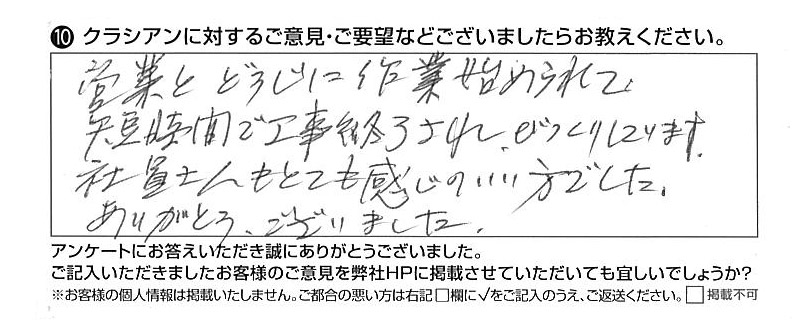 ⑩ クラシアンに対するご意見・ご要望などございましたらお教えください。
営業と どうじに作業始められて
短時間で工事終了され、びっくりしてます。
社員さんもとても感じのいい方でした。
ありがとう、ございました。
アンケートにお答えいただき誠にありがとうございました。
ご記入いただきましたお客様のご意見を弊社HPに掲載させていただいても宜しいでしょうか?
※お客様の個人情報は掲載いたしません。ご都合の悪い方は右記□欄に√をご記入のうえ、ご返送ください。 □ 掲載不可